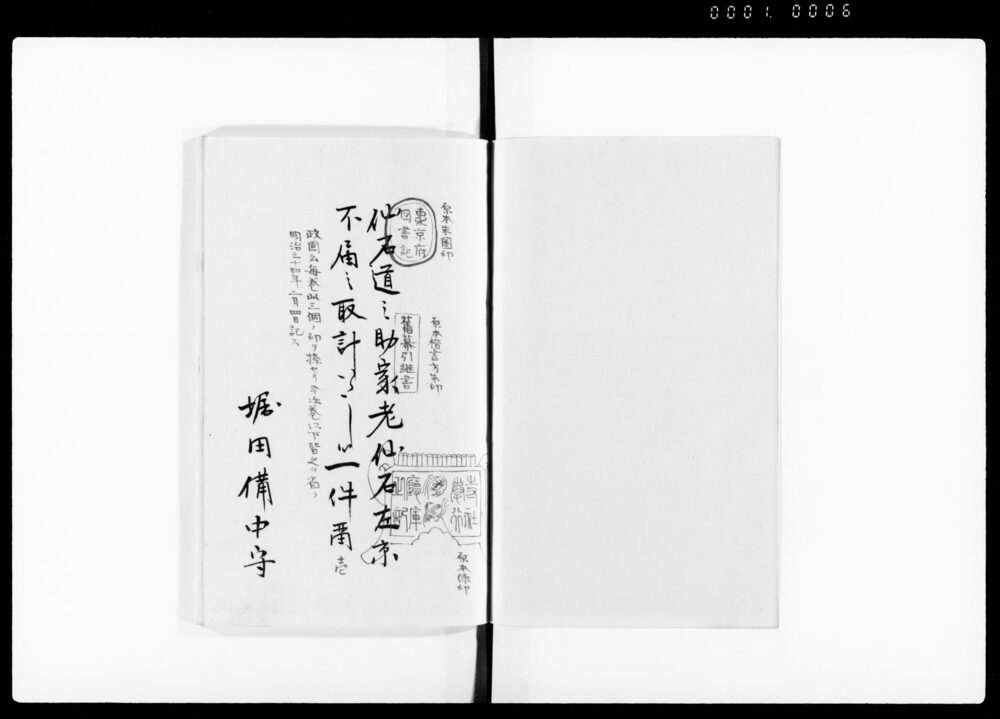 0001. 0006
原本朱圓印
東京府
図書記
原本楷書方朱印
舊幕引継書
寺社
奉行
原本緑印
仙石道之助家老仙石左京
不届之取計いたし候一件 壱
堀田備中守
政固云毎巻此三個ノ印ヲ捺セリ今次巻以下皆之ヲ省ク
明治三十四年二月四日記ス